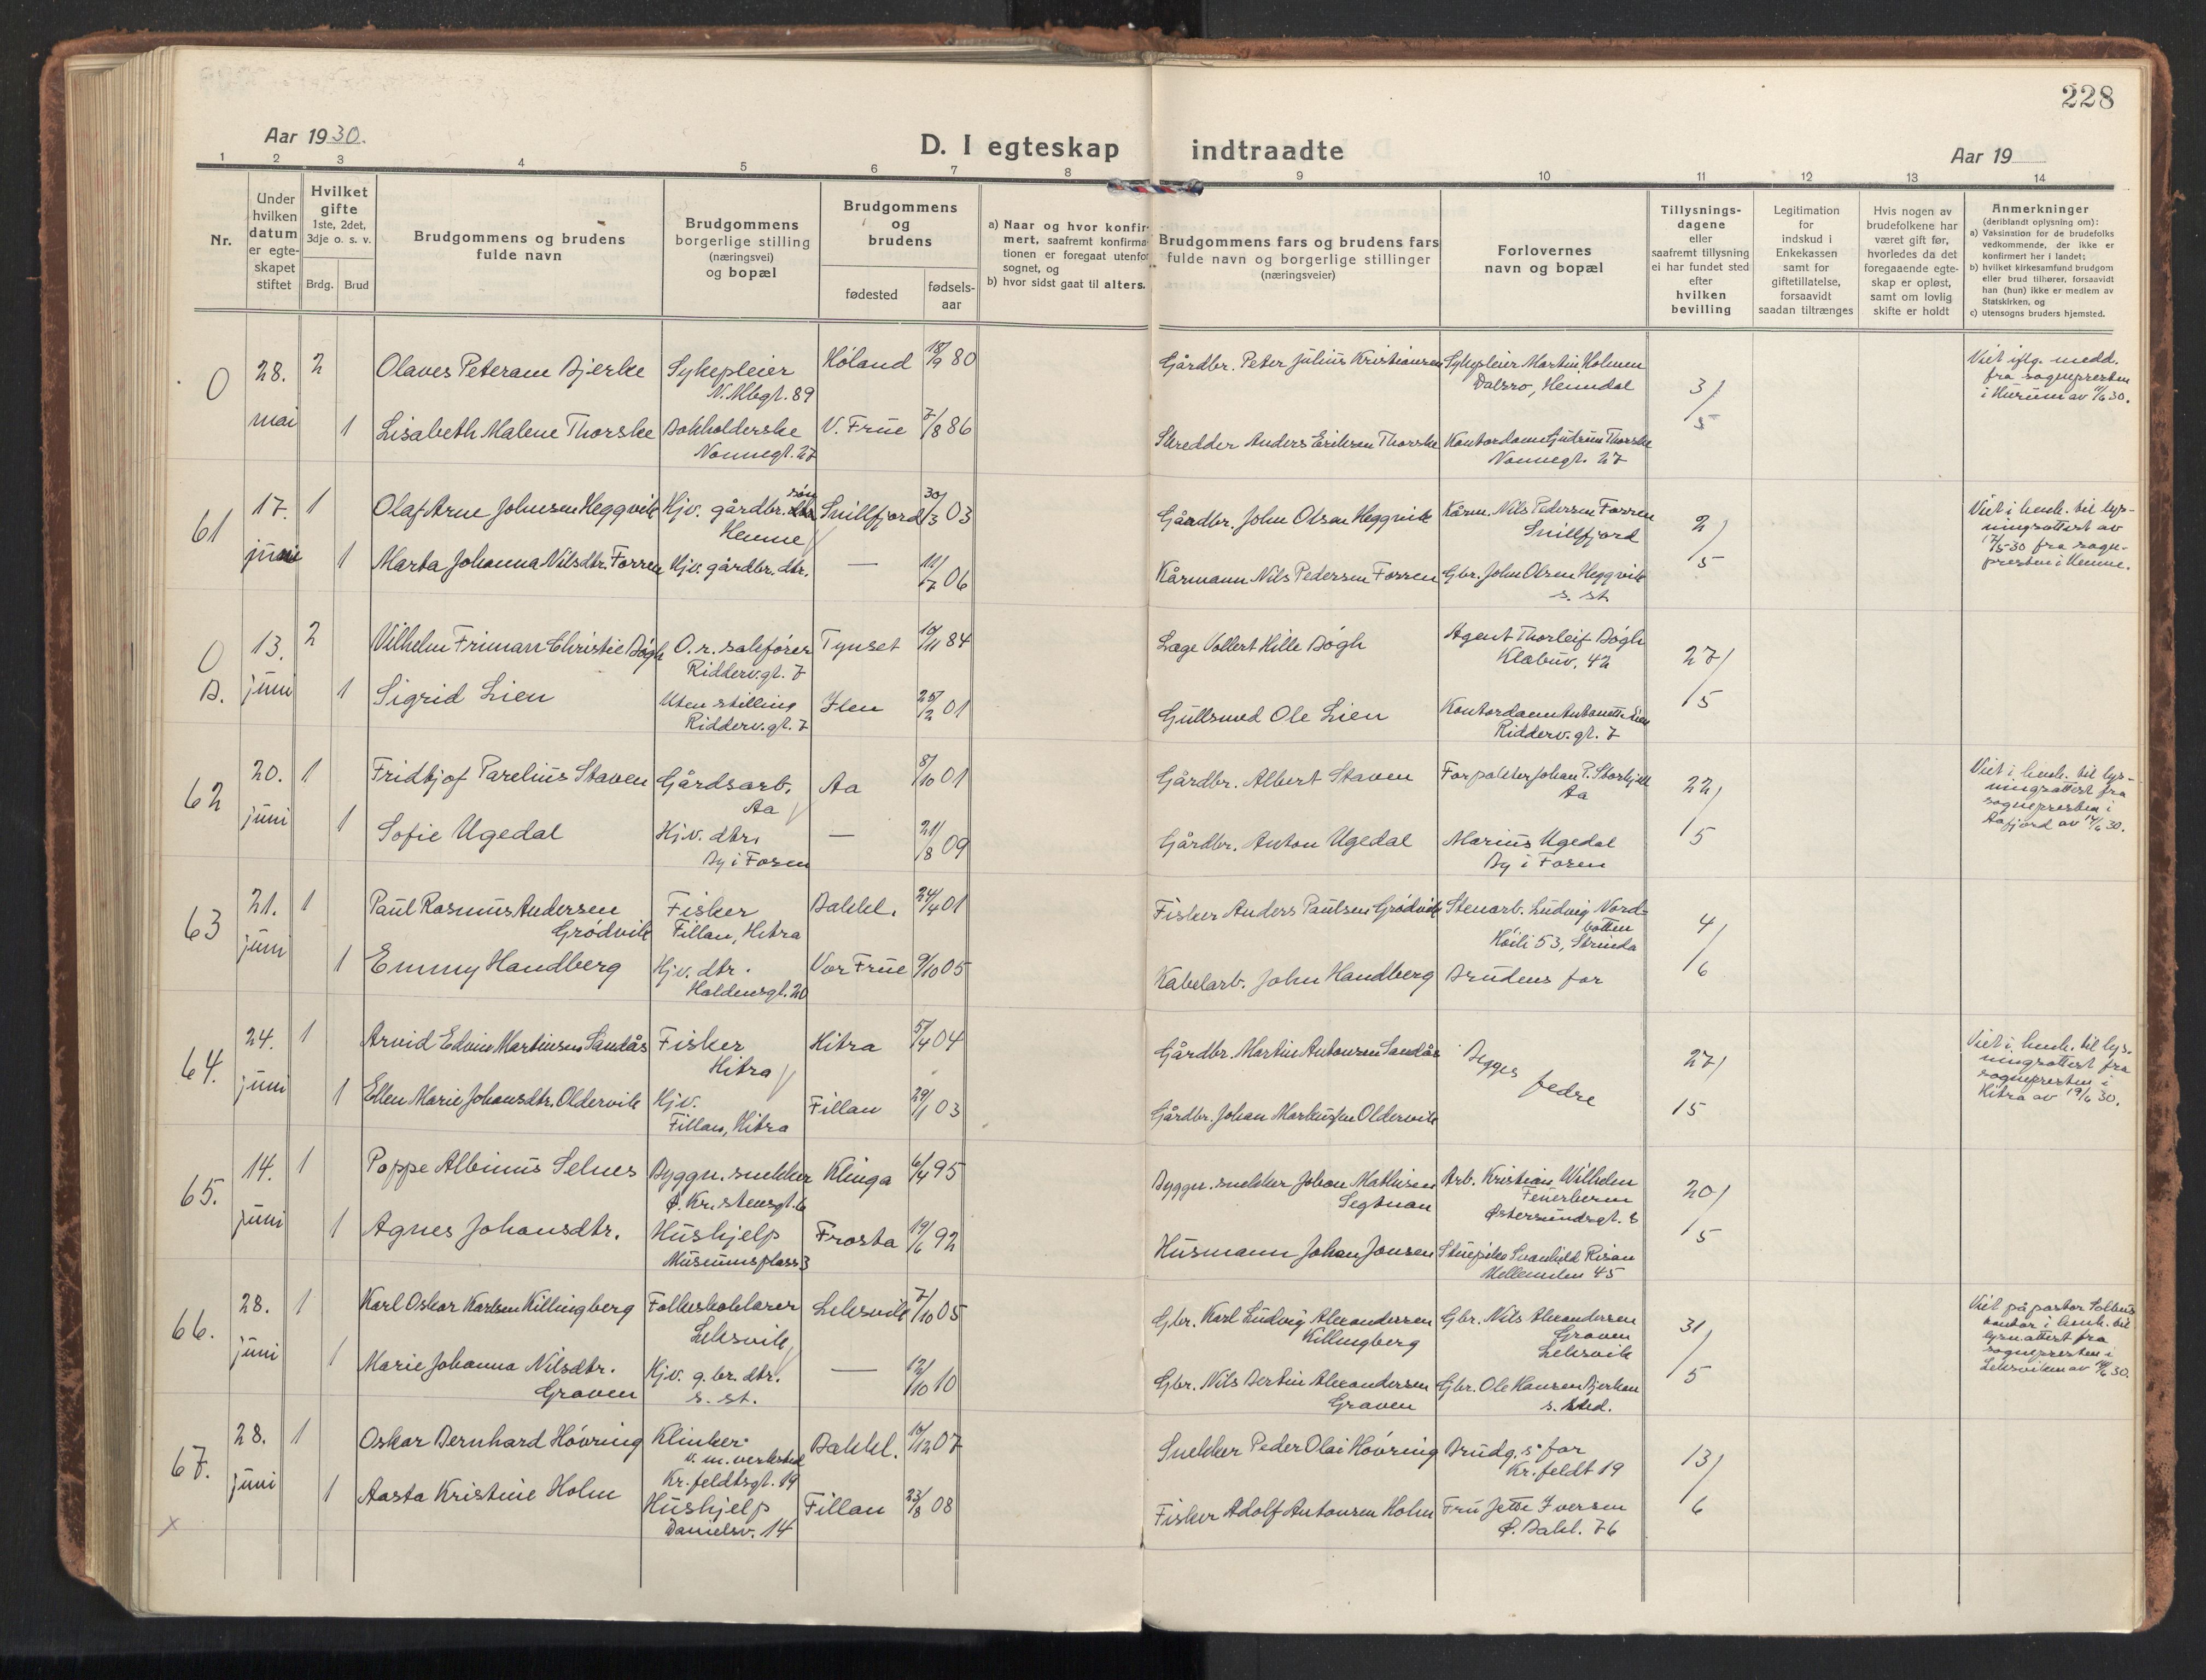 228
Aar 1930.
D. I egteskap indtraadte
Aar 19
1 2 3 4 5 6 7 8 9 10 11 12 13 14
Nr.
Under hvilken datum er egte-skapet stiftet
Hvilket gifte 1ste, 2det, 3dje o. s. v.
Brdg. Brud
Brudgommens og brudens fulde navn
Brudgommens borgerlige stilling (næringsvei) og bopæl
Brudgommens og brudens
fødested
fødsels-aar
a) Naar og hvor konfir-mert, saafremt konfirma-tionen er foregaat utenfor sognet, og
b) hvor sidst gaat til alters.
Brudgommens fars og brudens fars fulde navn og borgerlige stillinger (næringsveier)
Forlovernes navn og bopæl
Tillysnings-dagene eller saafremt tillysning ei har fundet sted efter hvilken bevilling
Legitimation for indskud i Enkekassen samt for giftetillatelse, forsaavidt saadan tiltrænges
Hvis nogen av brudefolkene har været gift før, hvorledes da det foregaaende egte-skap er opløst, samt om lovlig skifte er holdt
Anmerkninger (deriblandt oplysning om):
a) Vaksination for de brudefolks vedkommende, der ikke er konfirmert her i landet;
b) hvilket kirkesamfund brudgom eller brud tilhører, forsaavidt han (hun) ikke er medlem av Statskirken, og
c) utensogns bruders hjemsted.
0 28. mai 2 Olaves Peteram Bjerke Sykepleier Høland 18/9 80 Gårdbr. Peter Julius Kristiansen Sykepleier Martin Holmen 3/5 Viet iflg. medd.
N. Allégt. 89 Dalsro, Heimdal fra sognepresten
i Hurum av 11/6 30.
1 Lisabeth Malene Thorske Bokholderske V. Frue 7/8 86 Skredder Anders Eriksen Thorske Kontordame Gudrun Thorske
Nonnegt. 27 Nonnegt. 27
61 17. juni 1 Olaf Arne Johnsen Heggvik Hjv. gårdbr. søn Snillfjord 30/3 03 Gårdbr. John Olsen Heggvik Kårm. Nils Pedersen Forren 2/5 Viet i henh. til lys-
Hemne Snillfjord ningsattest av
17/5 30 fra sogne-
presten i Hemne.
1 Marta Johanna Nilsdtr. Forren Hjv. gårdbr. dtr. — 11/7 06 Kårmann Nils Pedersen Forren Gbr. John Olsen Heggvik
s. st.
0 B. 13. juni 2 Vilhelm Friman Christie Bøgh O. r. sakfører Tynset 10/11 84 Læge Vollert Hille Bøgh Agent Thorleif Bøgh 27/5
Ridderv. gt. 7 Klæbuv. 42
1 Sigrid Lien Uten stilling Ilen 25/2 01 Gullsmed Ole Lien Kontordame Antonette Lien
Ridderv. gt. 7 Ridderv. gt. 7
62 20. juni 1 Fridtjof Parelius Staven Gårdsarb. Aa 8/10 01 Gårdbr. Albert Staven Forpakter Johan P. Storfjell 22/5 Viet i henh. til lys-
Aa Aa ningsattest fra
sognepresten i
Aafjord av 14/6 30.
1 Sofie Ugedal Hjv. dtr. — 21/8 09 Gårdbr. Anton Ugedal Marius Ugedal
By i Fosen By i Fosen
63 21. juni 1 Paul Rasmus Andersen Fisker Bakkl. 24/4 01 Fisker Anders Paulsen Grødvik Stenarb. Ludvig Nord- 4/6
Grødvik Fillan, Hitra botten
Høili 53, Strinda
1 Emmy Handberg Hjv. dtr. Vor Frue 9/10 05 Kabelarb. John Handberg Brudens far
Holdensgt. 20
64. 24. juni 1 Arvid Edvin Martinsen Sandås Fisker Hitra 5/4 04 Gårdbr. Martin Antonsen Sandås Begges fedre 27/5 Viet i henh. til lys.
Hitra ningsattest fra
sognepresten i
Hitra av 19/6 30.
1 Ellen Marie Johansdtr. Oldervik Hjv. Fillan 29/1 03 Gårdbr. Johan Markussen Oldervik
Fillan, Hitra
65. 14. juni 1 Poppe Albinus Selnes Byggn. snekker Klinga 6/4 95 Byggn. snekker Johan Mathisen Arb. Kristian Wilhelm 20/5
Ø. Kr.stensgt. 6 Segtnan Feuerherm
Østersundsgt. 8
1 Agnes Johansdtr. Hushjelp Frosta 19/6 92 Husmann Johan Jonsen Stuepike Svanhild Risan
Museumsplass 3 Mellemilen 45
66. 28. juni 1 Karl Oskar Karlsen Killingberg Folkeskolelærer Leksvik 7/10 05 Gbr. Karl Ludvig Alexandersen Gbr. Nils Alexandersen 31/5 Viet på pastor Solbus
Leksvik Killingberg Graven kontor i henh. til
Leksvik lysn.attest fra
sognepresten i
Leksviken av 16/6 30.
1 Marie Johanna Nilsdtr. Hjv. g.br. dtr. — 12/10 10 Gbr. Nils Bertin Alexandersen Gbr. Ole Hansen Bjerkan
Graven s. st. Graven s. sted.
67. 28. juni 1 Oskar Bernhard Høvring Klinker Bakkl. 16/12 07 Snekker Peder Olai Høvring Brudg.s far 13/6
v. m. verksted Kr. feldt 19
Kr. feldtsgt. 19
1 Aasta Kristine Holm Hushjelp Fillan 23/8 08 Fisker Adolf Antonsen Holm Fru Jette Iversen
Danielsv. 14 Ø. Bakl. 76
x